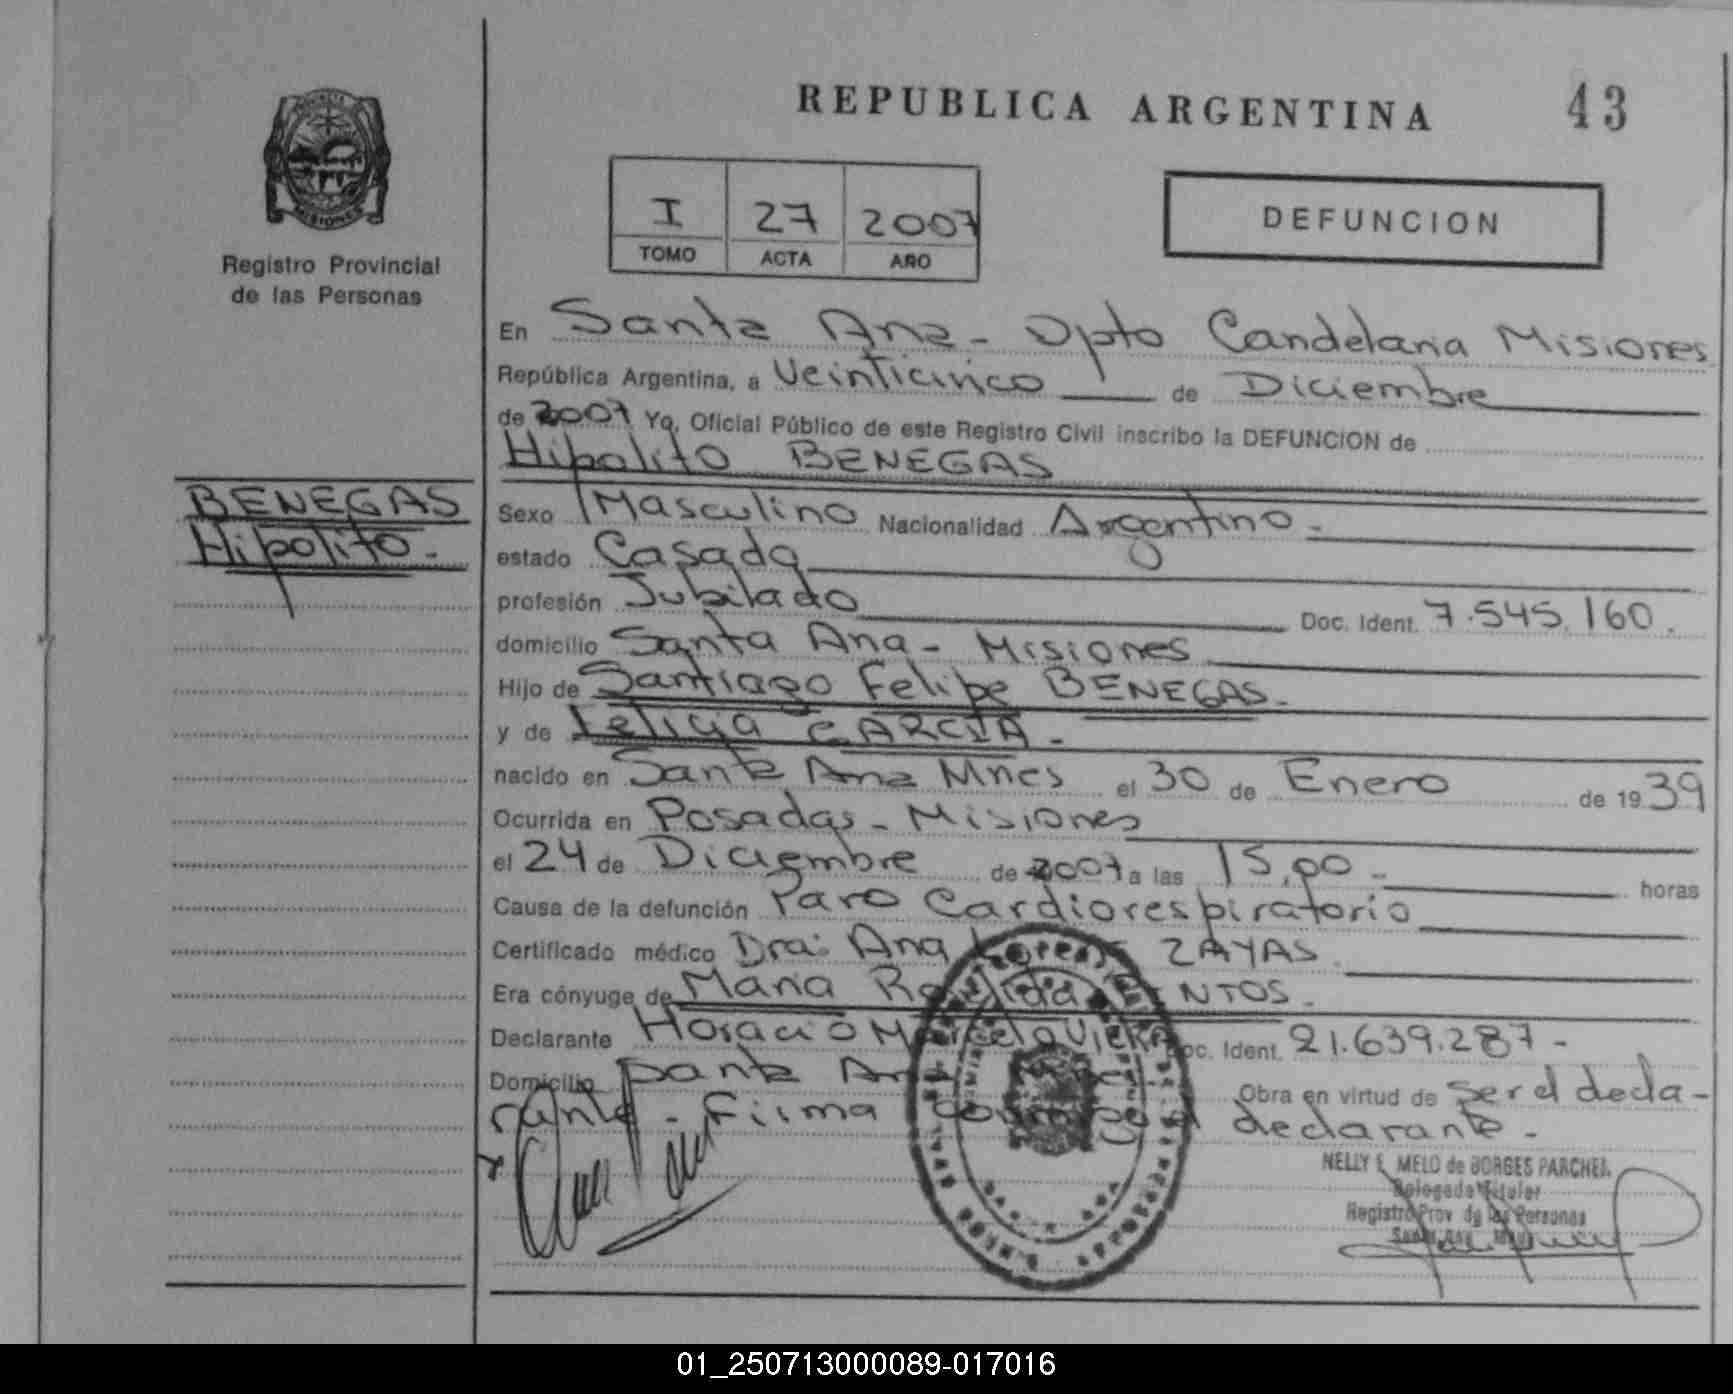 REPUBLICA ARGENTINA 43
PROVINCIA DE
MISIONES
Registro Provincial
de las Personas
I 27 2007
TOMO ACTA AÑO
DEFUNCION
En Santa Ana - Dpto Candelaria Misiones
República Argentina, a Veinticinco de Diciembre
de 2007 Yo, Oficial Público de este Registro Civil inscribo la DEFUNCION de
Hipolito BENEGAS
BENEGAS
Hipolito.-
Sexo Masculino Nacionalidad Argentino.-
estado Casado
profesión Jubilado Doc. Ident. 7.545.160.
domicilio Santa Ana - Misiones
Hijo de Santiago Felipe BENEGAS.-
y de GARCIA.-
nacido en Santa Ana Mnes el 30 de Enero de 1939
Ocurrida en Posadas - Misiones
el 24 de Diciembre de 2007 a las 15,00.- horas
Causa de la defunción Paro Cardiorespiratorio
Certificado médico Dra: Ana ZAYAS.
Era cónyuge de Maria
Declarante Horacio Doc. Ident. 21.639.287.-
Domicilio Santa Obra en virtud de ser el decla-
rante.- Firma declarante.-
NELLY E. MELO de BORGES PARCHEN
Delegada Titular
Registro Prov. de las Personas
01_250713000089-017016